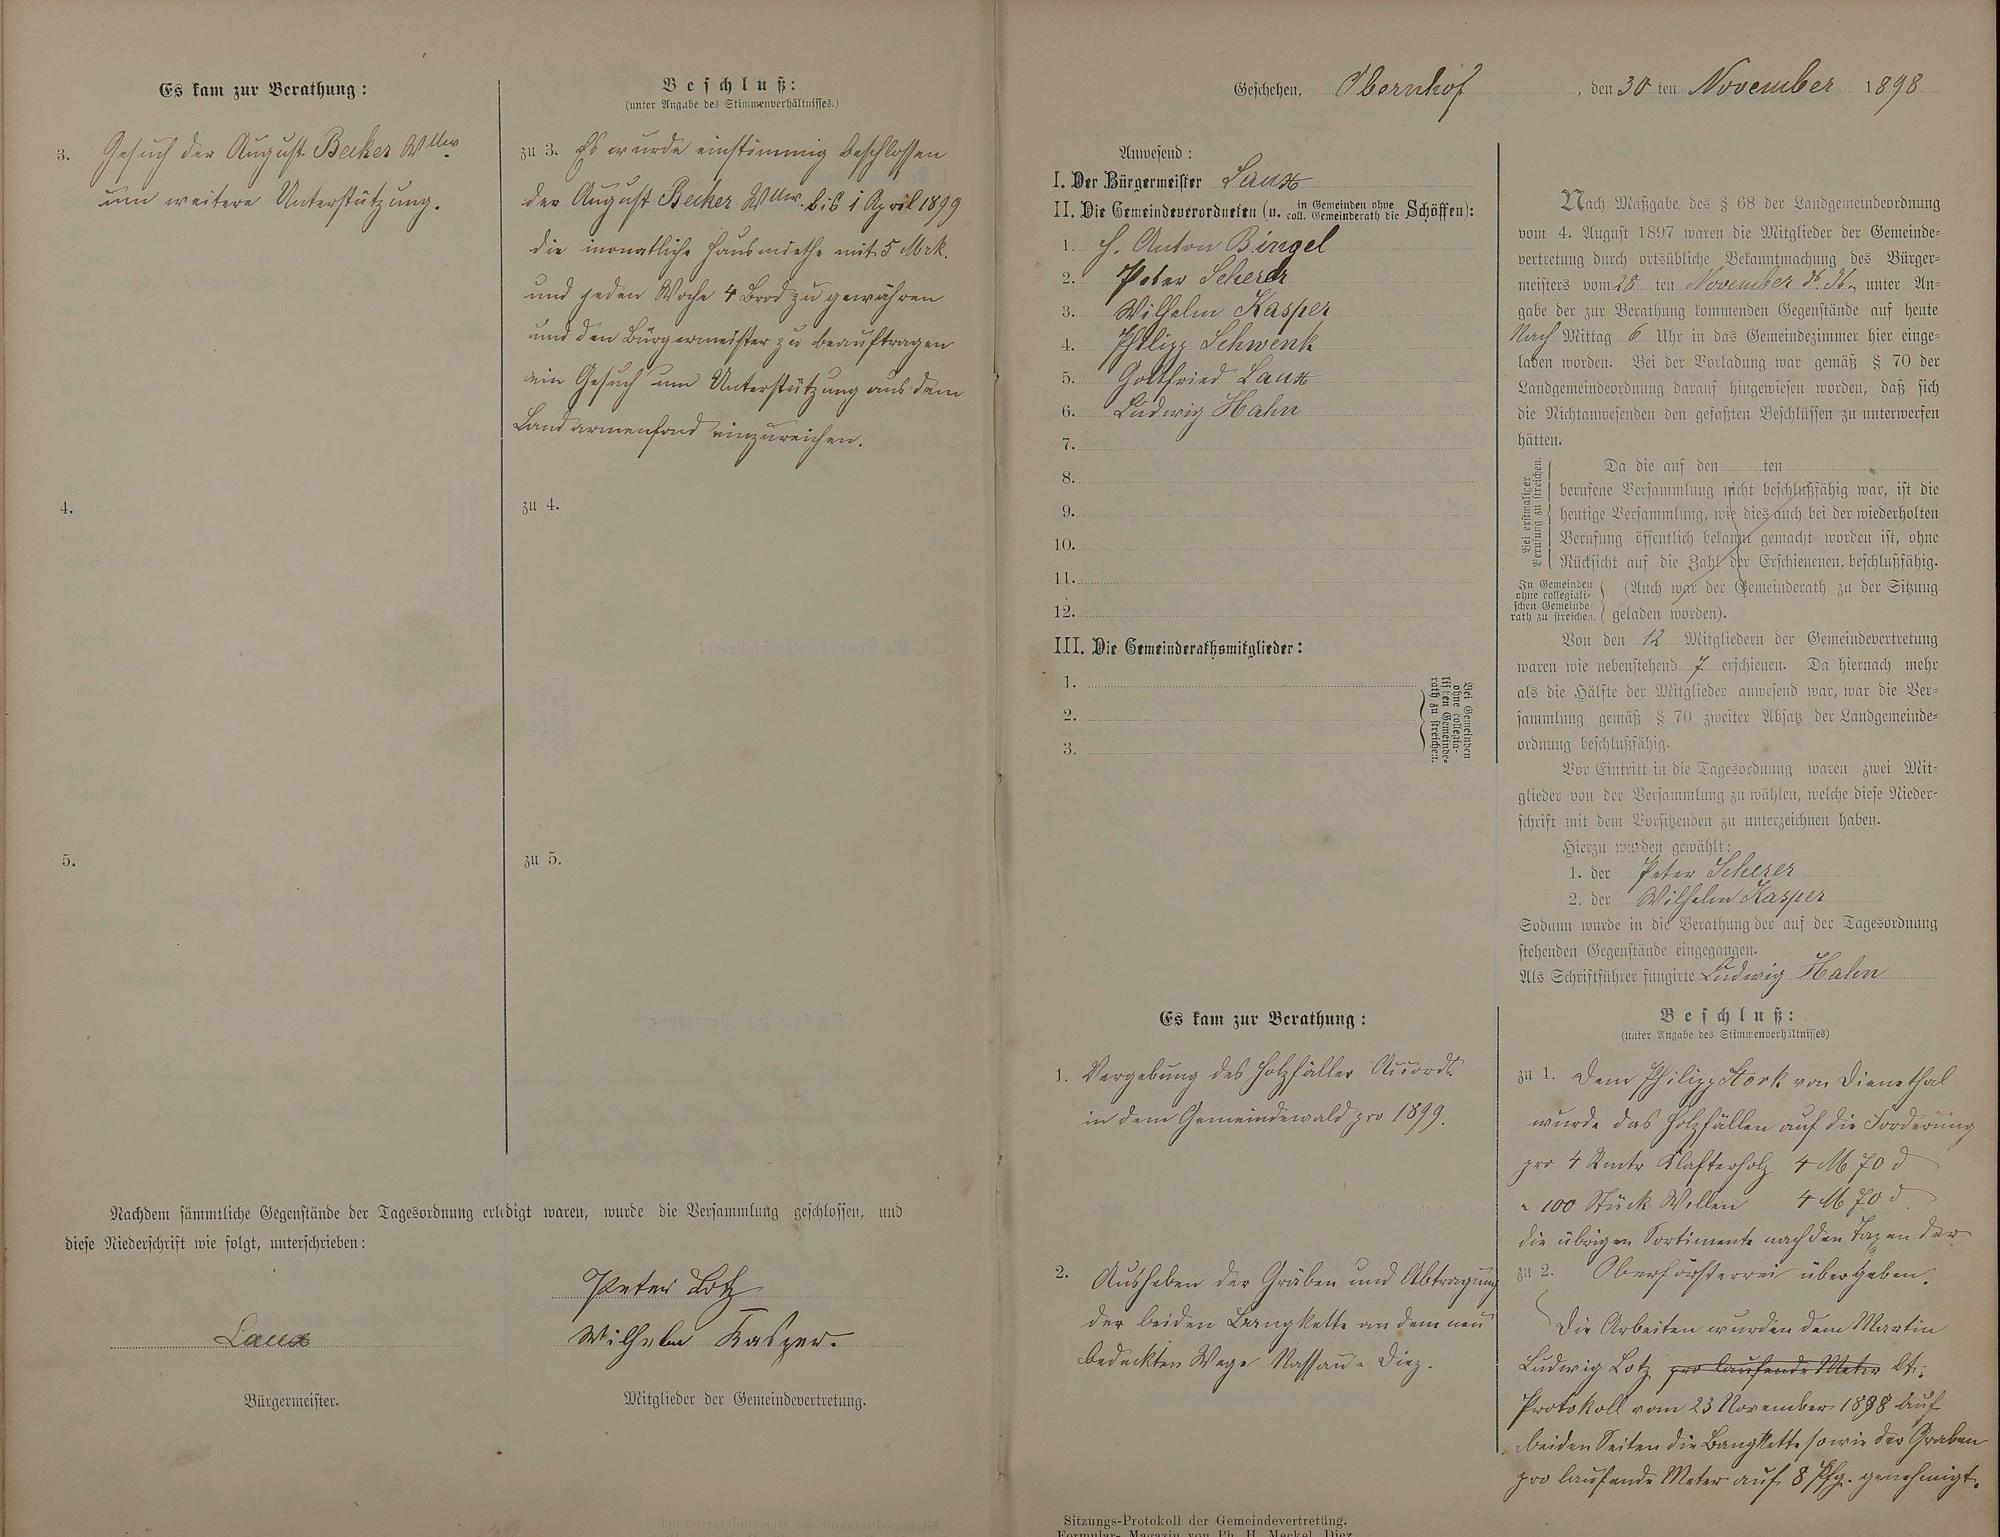 Es kam zur Berathung:
3. Gesuch der August Becker Wttw.
um weitere Unterstützung.
4.
5.
Beschluß:
(unter Angabe des Stimmenverhältnisses.)
zu 3. Es wurde einstimmig beschlossen
der August Becker Wttw. bis 1 April 1899
die monatliche Hausmiethe mit 5 Mrk.
und jeden Woche 4 Brod zu gewähren
und den Bürgermeister zu beauftragen
ein Gesuch um Unterstützung aus dem
Landarmenfond einzureichen.
zu 4.
zu 5.
Nachdem sämmtliche Gegenstände der Tagesordnung erledigt waren, wurde die Versammlung geschlossen, und
diese Niederschrift wie folgt, unterschrieben:
Peter Lotz
Laux
Wilhelm Kasper.
Bürgermeister.
Mitglieder der Gemeindevertretung.
Geschehen, Obernhof, den 30 ten November 1898
Anwesend:
I. Der Bürgermeister Laux
II. Die Gemeindeverordneten (u. in Gemeinden ohne coll. Gemeinderath die Schöffen):
1. H. Anton Bingel
2. Peter Scherer
3. Wilhelm Kasper
4. Philipp Schwenk
5. Gottfried Laux
6. Ludwig Hahn
7.
8.
9.
10.
11.
12.
III. Die Gemeinderathsmitglieder:
1.
2.
3.
Bei Gemeinden
ohne collegia-
lischen Gemeinde-
rath zu streichen.
Nach Maßgabe des § 68 der Landgemeindeordnung
vom 4. August 1897 waren die Mitglieder der Gemeinde-
vertretung durch ortsübliche Bekanntmachung des Bürger-
meisters vom 28 ten November ds. Js., unter An-
gabe der zur Berathung kommenden Gegenstände auf heute
Nach Mittag 6 Uhr in das Gemeindezimmer hier einge-
laden worden. Bei der Vorladung war gemäß § 70 der
Landgemeindeordnung darauf hingewiesen worden, daß sich
die Nichtanwesenden den gefaßten Beschlüssen zu unterwerfen
hätten.
Bei erstmaliger
Berufung zu streichen.
Da die auf den ten
berufene Versammlung nicht beschlußfähig war, ist die
heutige Versammlung, wie dies auch bei der wiederholten
Berufung öffentlich bekannt gemacht worden ist, ohne
Rücksicht auf die Zahl der Erschienenen, beschlußfähig.
In Gemeinden
ohne collegiali-
schen Gemeinde-
rath zu streichen.
(Auch war der Gemeinderath zu der Sitzung
geladen worden).
Von den 12 Mitgliedern der Gemeindevertretung
waren wie nebenstehend 7 erschienen. Da hiernach mehr
als die Hälfte der Mitglieder anwesend war, war die Ver-
sammlung gemäß § 70 zweiter Absatz der Landgemeinde-
ordnung beschlußfähig.
Vor Eintritt in die Tagesordnung waren zwei Mit-
glieder von der Versammlung zu wählen, welche diese Nieder-
schrift mit dem Vorsitzenden zu unterzeichnen haben.
Hierzu wurden gewählt:
1. der Peter Scherer
2. der Wilhelm Kasper
Sodann wurde in die Berathung der auf der Tagesordnung
stehenden Gegenstände eingegangen.
Als Schriftführer fungirte Ludwig Hahn
Es kam zur Berathung:
1. Vergebung des Holzfäller Accords
in dem Gemeindewald pro 1899.
2. Ausheben der Gräben und Abtragung
der beiden Bangkette an dem neu
bedeckten Wege Nassau - Diez.
Beschluß:
(unter Angabe des Stimmenverhältnisses)
zu 1. Dem Philipp Stork von Dienethal
wurde das Holzfällen auf die Forderung
pro 4 Rmtr Klafterholz 4 M 70 d
" 100 Stück Wellen 4 M 70 d
die übrigen Sortimente nach den Taxen der
Oberförsterrei übergeben.
zu 2.
Die Arbeiten wurden dem Martin
Ludwig Lotz pro laufende Meter lt:
Protokoll vom 23 November 1898 auf
beiden Seiten die Bangkette sowie der Graben
pro laufende Meter auf 8 Pfg. genehmigt.
Sitzungs-Protokoll der Gemeindevertretung.
Formular-Magazin von Ph. H. Meckel, Diez